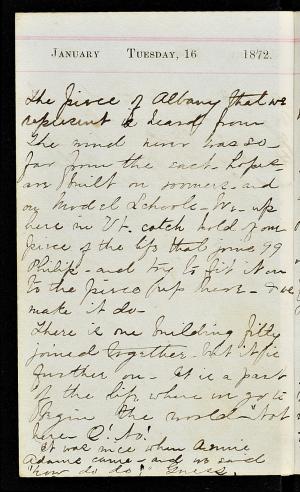 January Tuesday, 16 1872.
The piece of Albany that we
represent is heard from
The mind never was so
far from the each hopes
are built on rooms and
our Model Schools - We up
here in Vt. catch hold of our
piece of the life that joins 99
Philip - and try to fit it on
to the piece up here - & we
make it do -
There is one building fitly
joined together - but it is
further on - It is a part
of the life where we go to
begin the world - Not
here O! No!
It was nice when Annie
Adams came - and we said
"how do do" Guess.